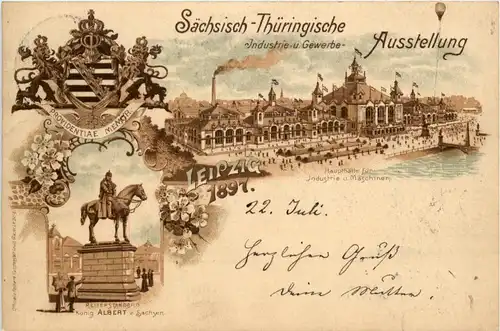 Sächsisch-Thüringische
Industrie- u. Gewerbe-
Ausstellung
PROVIDENTIAE MEMOR
LEIPZIG
1897.
Haupthalle für
Industrie u. Maschinen.
22. Juli.
Herzlichen Gruß
deine Mutter.
REITERSTANDBILD
König ALBERT v. Sachsen.